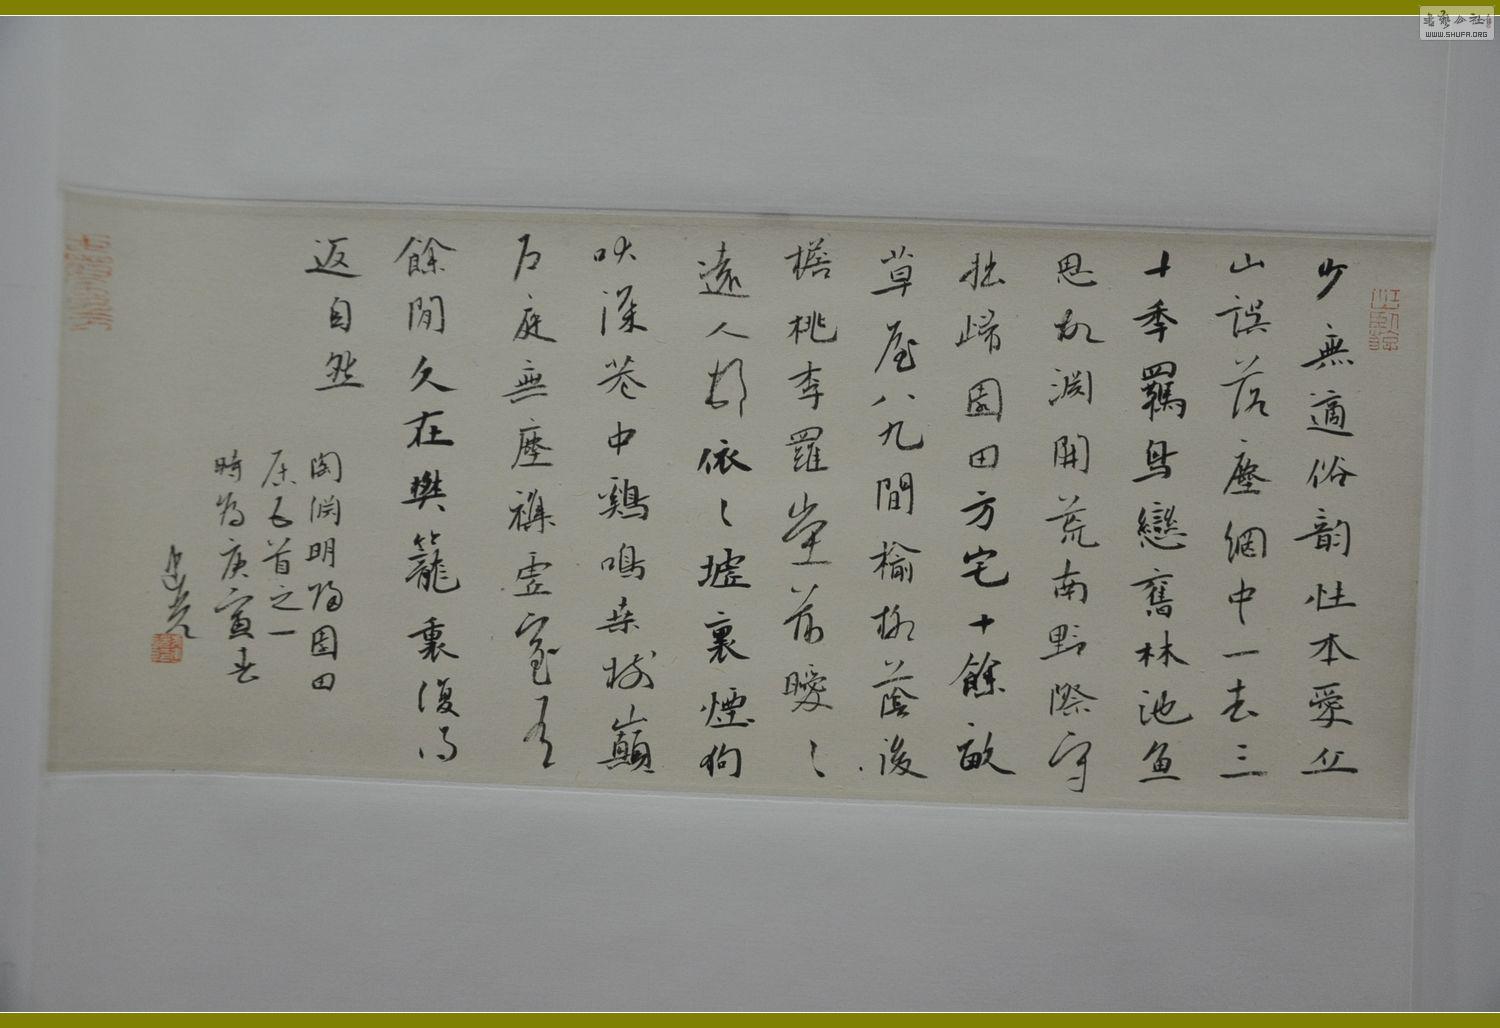 少無適俗韵性本愛丘
山誤落塵網中一去三
十季羈鳥戀舊林池魚
思故淵開荒南野際守
拙歸園田方宅十餘畝
草屋八九間榆柳蔭後
檐桃李羅堂前曖〻
遠人邨依〻墟裏煙狗
吠深巷中鷄鳴桑樹巔
戶庭無塵襍虛室有
餘閒久在樊籠裏復得
返自然
陶淵明歸園田
居五首之一
時為庚寅春
WWW.SHUFA.ORG